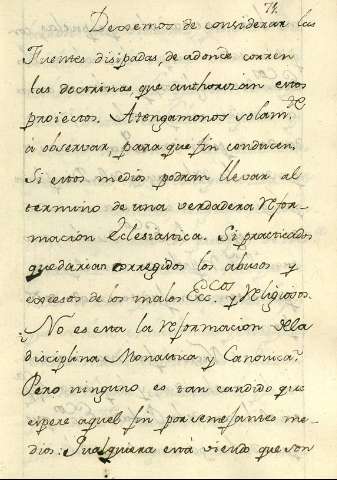 71.
Dexemos de considerar las
Fuentes disipadas, de adonde corren
las doctrinas que authorizan estos
proiectos. Atengamonos solam.te
á observar, para que fin conducen.
Si estos medios podran llevar al
termino de una verdadera refor-
macion Eclesiastica. Si practicados
quedarian corregidos los abusos y
excesos de los malos Ecc.cos y Religiosos.
¿No es esta la reformacion dela
disciplina Monastica y Canonica?
Pero ninguno es tan candido que
espere aquel fin por semejantes me-
dios. Qualquiera está viendo que son